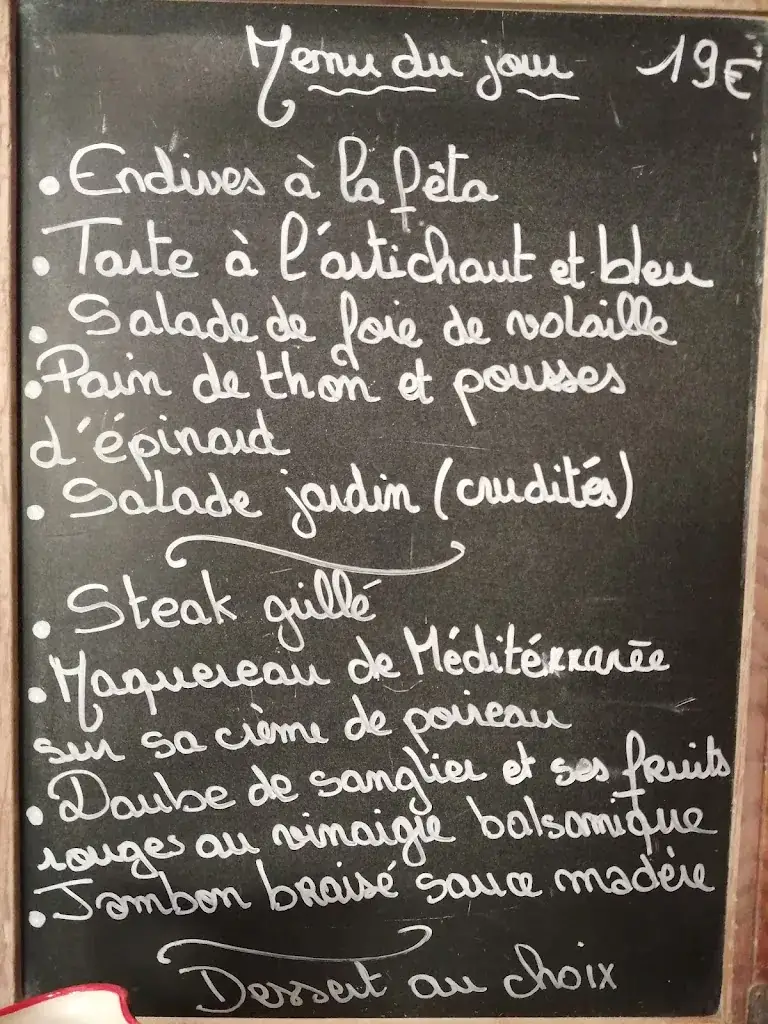 Menu du jour 19€
• Endives à la fêta
• Tarte à l'artichaut et bleu
• Salade de foie de volaille
• Pain de thon et pousses
d'épinard
• Salade jardin (crudités)
• Steak grillé
• Maquereau de Méditérranée
sur sa crème de poireau
• Daube de sanglier et ses fruits
rouges au vinaigre balsamique
• Jambon braisé sauce madère
Dessert au choix